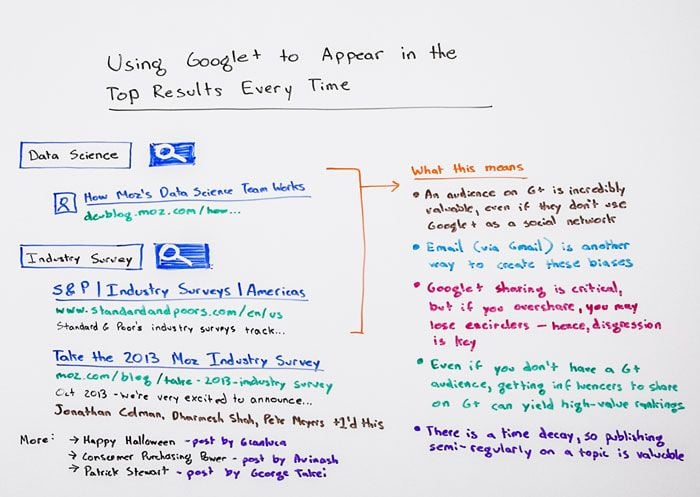 Using Google+ to Appear in the
Top Results Every Time
Data Science
How Moz's Data Science Team Works
devblog.moz.com/how...
Industry Survey
S&P | Industry Surveys | Americas
www.standardandpoors.com/en/us
Standard & Poor's industry surveys track...
Take the 2013 Moz Industry Survey
moz.com/blog/take-2013-industry survey
Oct 2013 - We're very excited to announce...
Jonathan Colman, Dharmesh Shah, Pete Meyers +1'd this
More: → Happy Halloween - post by Gianluca
→ Consumer Purchasing Power - post by Avinash
→ Patrick Stewart - post by George Takei
What this means
• An audience on G+ is incredibly
valuable, even if they don't use
Google+ as a social network
• Email (via Gmail) is another
way to create these biases
• Google+ sharing is critical,
but if you overshare, you may
lose encirclers - hence, disgression
is key
• Even if you don't have a G+
audience, getting influencers to share
on G+ can yield high-value rankings
• There is a time decay, so publishing
semi-regularly on a topic is valuable